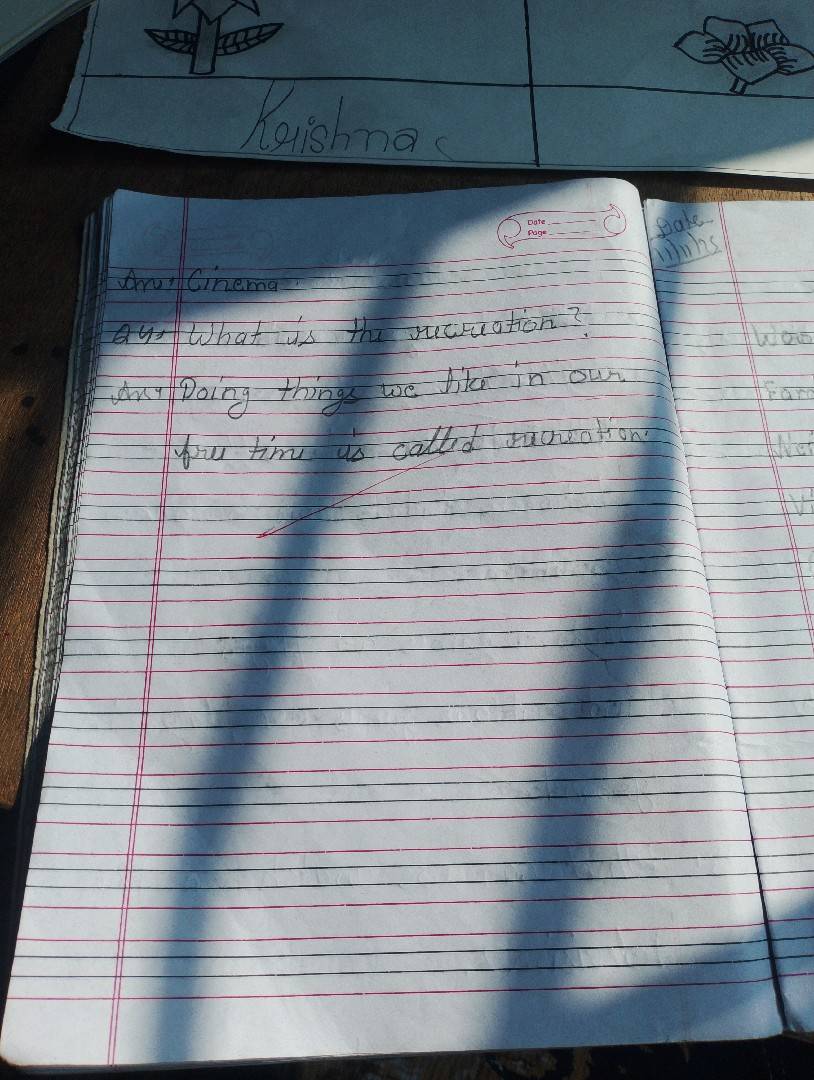 Krishna
Date
Page
Ans, Cinema.
Q4, What is the recreation?
Ans, Doing things we like in our
free time is called recreation.
Date
11/11/25